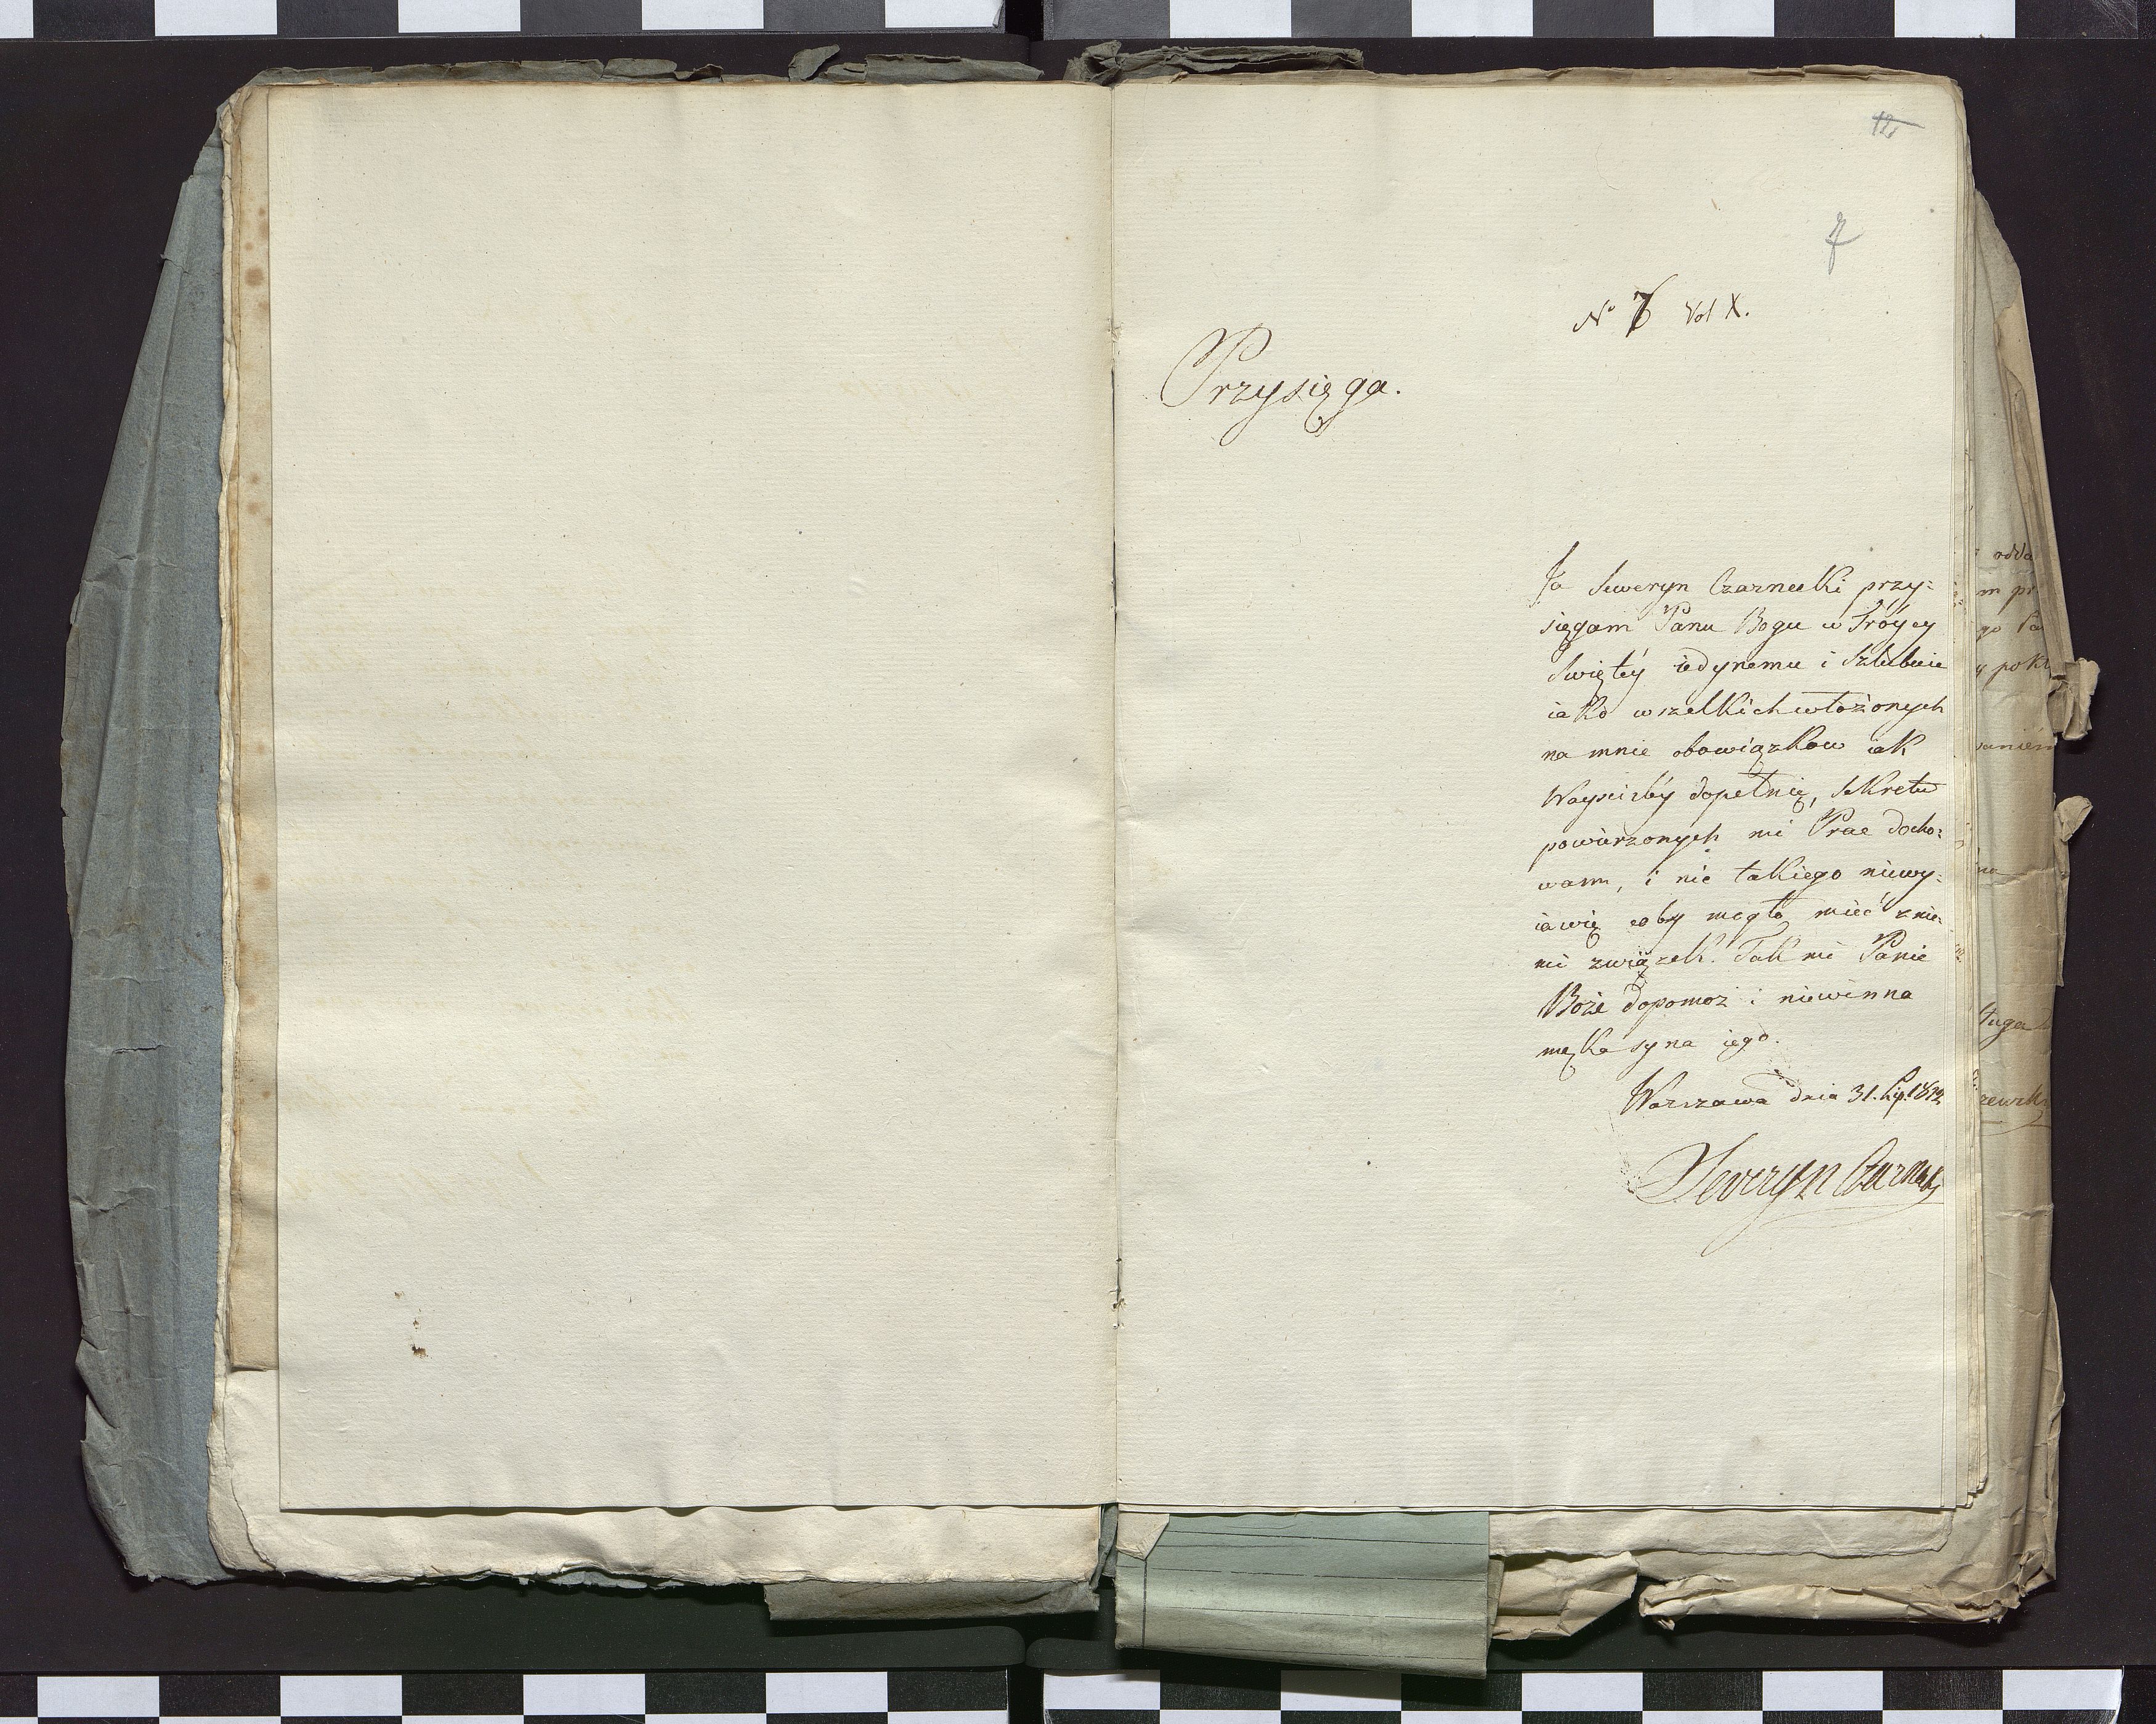 12
7
No 7 Vol X.
Przysięga.
Ja Seweryn Czarnecki przy=
sięgam Panu Bogu w Tróycy
Swiętéy iedynemu i Szlubuie
iako wszelkich włożonych
na mnie obowiązkow iak
Nayscisley dopełnię, Sekretu
powierzonych mi Prac docho=
wam, i nic takiego niewy=
iawię coby mogło mieć z nie=
mi związek. Tak mi Panie
Boże dopomoż i niewinna
męka syna iego.
Warszawa dnia 31. Lip. 1812
Seweryn Czarnecki
odda
m pr
go Pa
y pokt